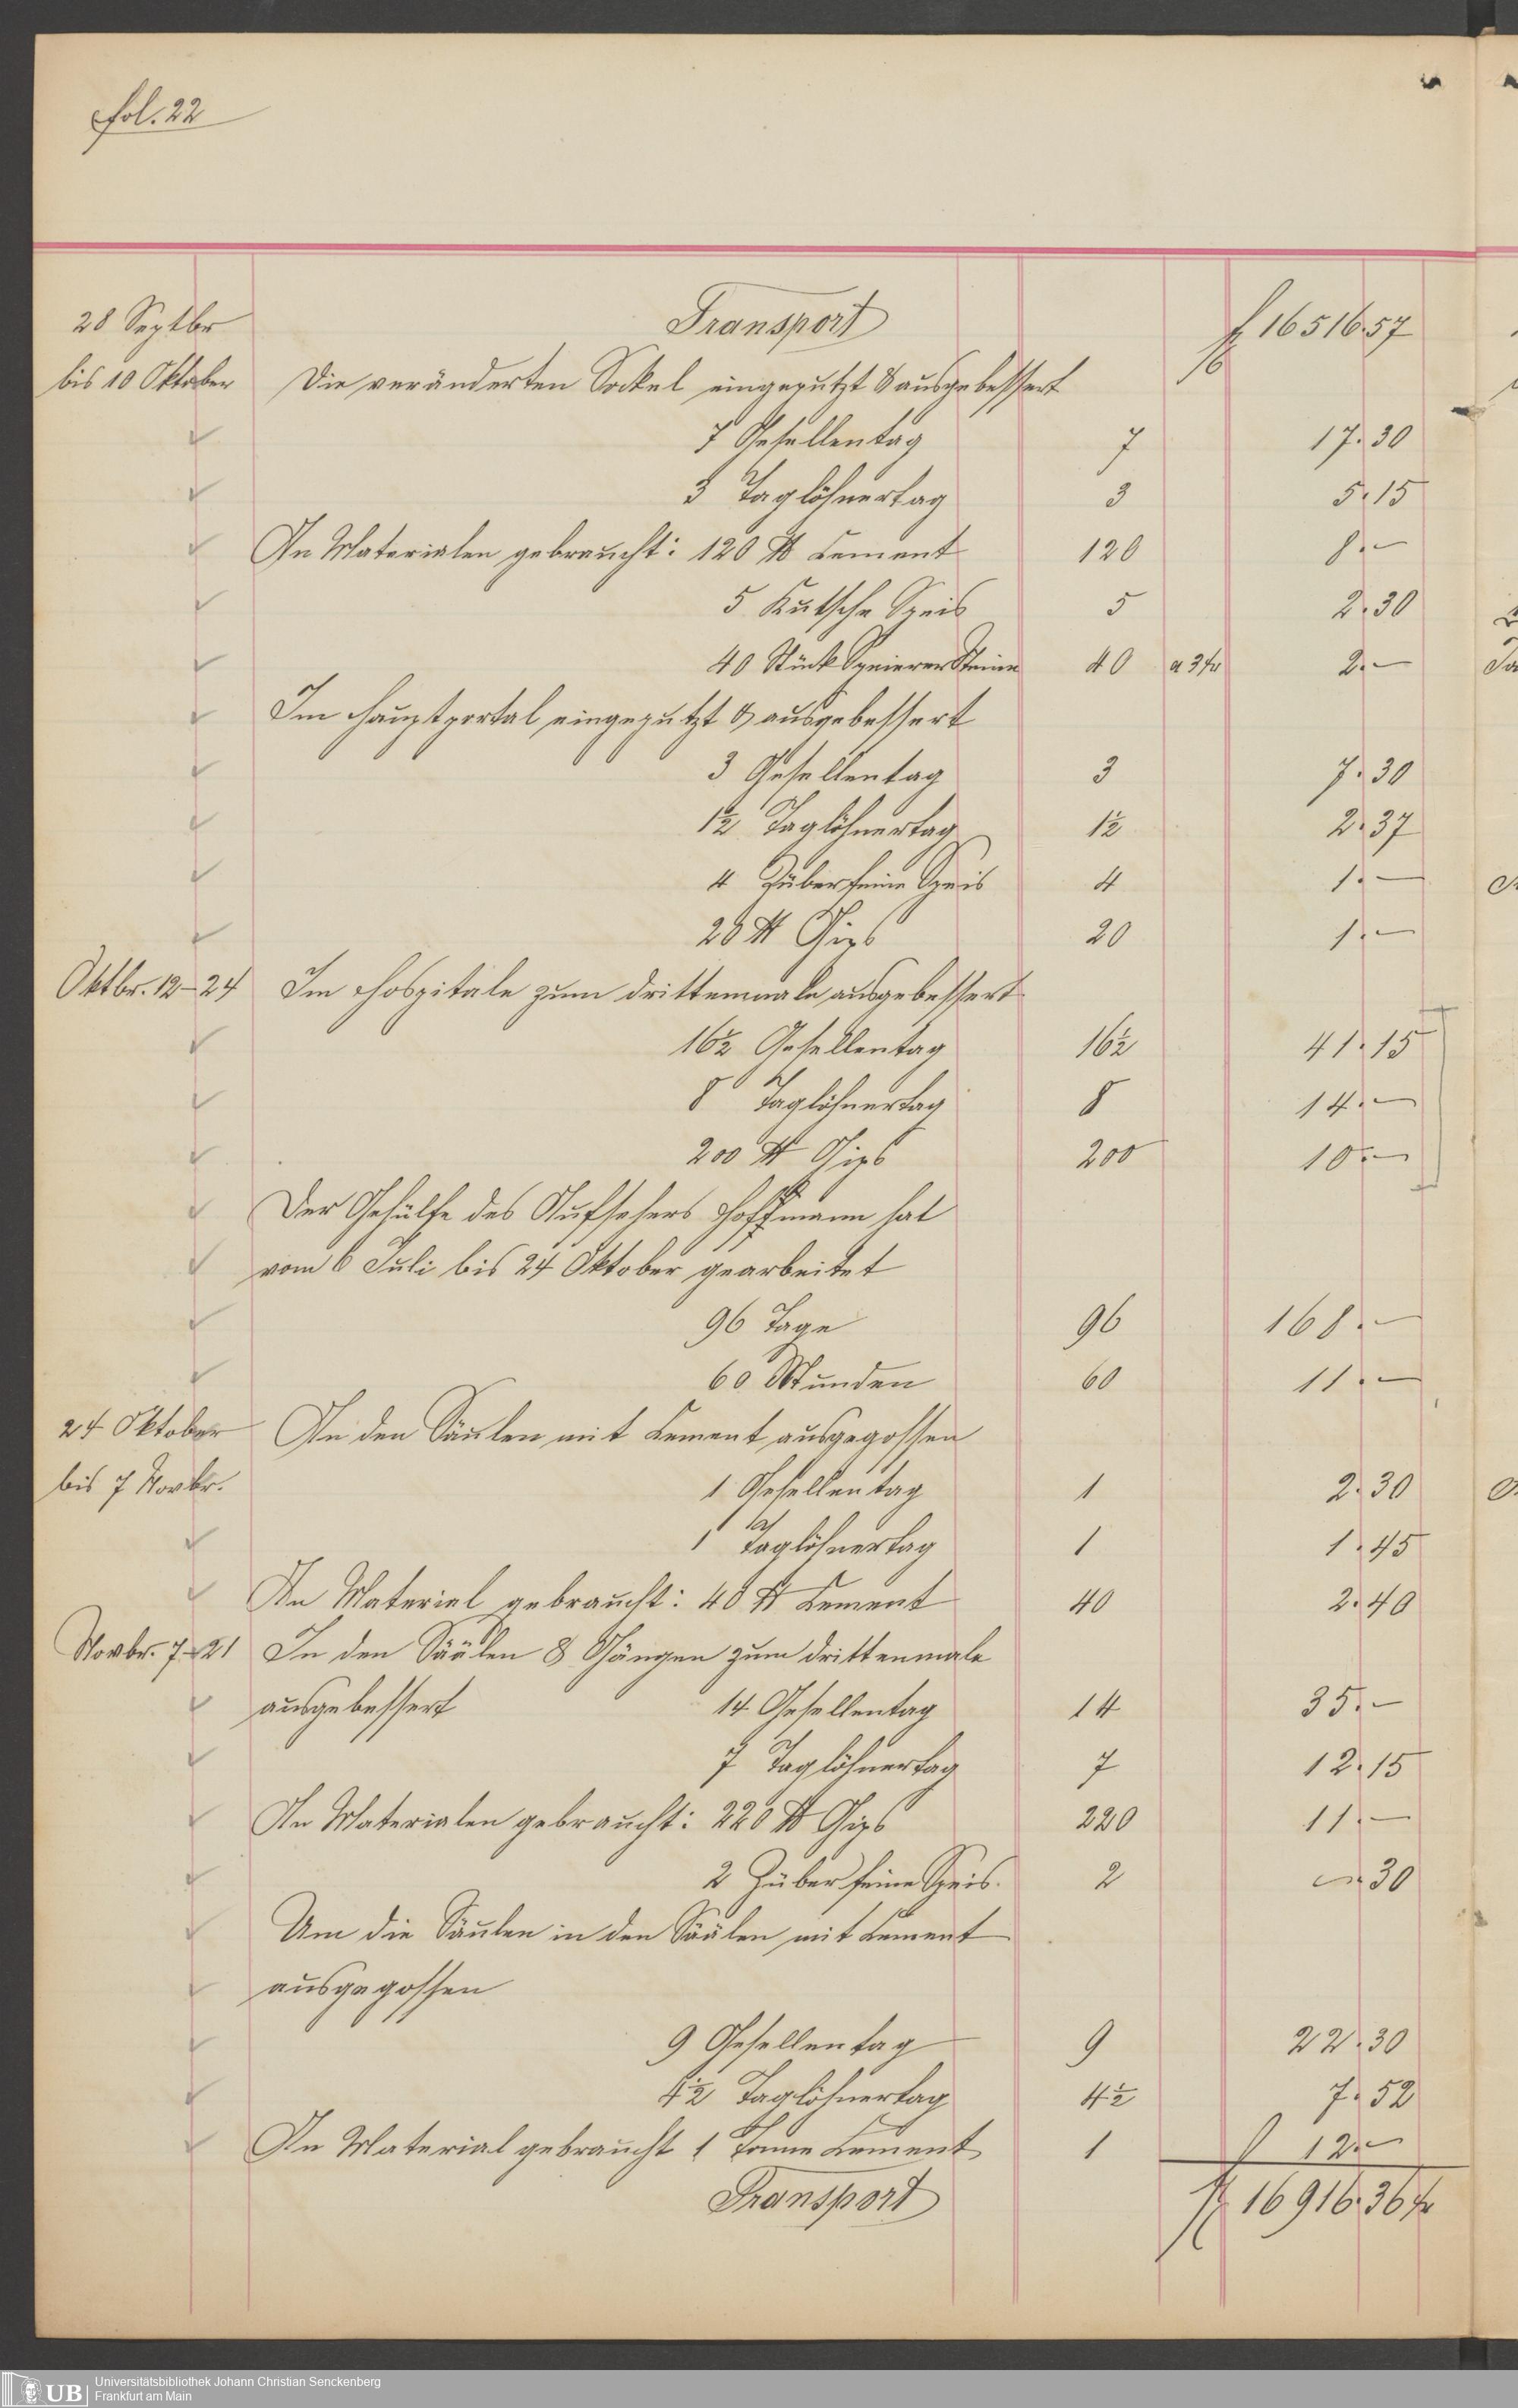 fol. 22
28 Septbr Transport f 16516.57
bis 10 Oktober Die veränderten Sockel eingeputzt & ausgebessert
7 Gesellentag 7 17.30
3 Taglöhnertag 3 5.15
An Materialen gebraucht: 120 ℔ Cement 120 8.—
5 Kutsche Speis 5 2.30
40 Stück Speierer Steine 40 a 3 kr 2.—
Im Hauptportal eingeputzt & ausgebessert
3 Gesellentag 3 7.30
1½ Taglöhnertag 1½ 2.37
4 Züber feine Speis 4 1.—
20 ℔ Gips 20 1.—
Oktbr. 12–24 Im Hospitale zum drittenmale ausgebessert
16½ Gesellentag 16½ 41.15
8 Taglöhnertag 8 14.—
200 ℔ Gips 200 10.—
Der Gehülfe des Aufsehers Hoffmann hat
vom 6 Juli bis 24 Oktober gearbeitet
96 Tage 96 168.—
60 Stunden 60 11.—
24 Oktober An den Säulen mit Cement ausgegossen
bis 7 Novbr. 1 Gesellentag 1 2.30
1 Taglöhnertag 1 1.45
An Material gebraucht: 40 ℔ Cement 40 2.40
Novbr. 7–21 In den Säälen & Gängen zum drittenmale
ausgebessert 14 Gesellentag 14 35.—
7 Taglöhnertag 7 12.15
An Materialen gebraucht: 220 ℔ Gips 220 11.—
2 Züber feine Speis. 2 —.30
Um die Säulen in den Säälen mit Cement
ausgegossen
9 Gesellentag 9 22.30
4½ Taglöhnertag 4½ 7.52
An Material gebraucht 1 Tonne Cement 1 12.—
Transport f 16916.36 kr
UB Universitätsbibliothek Johann Christian Senckenberg
Frankfurt am Main